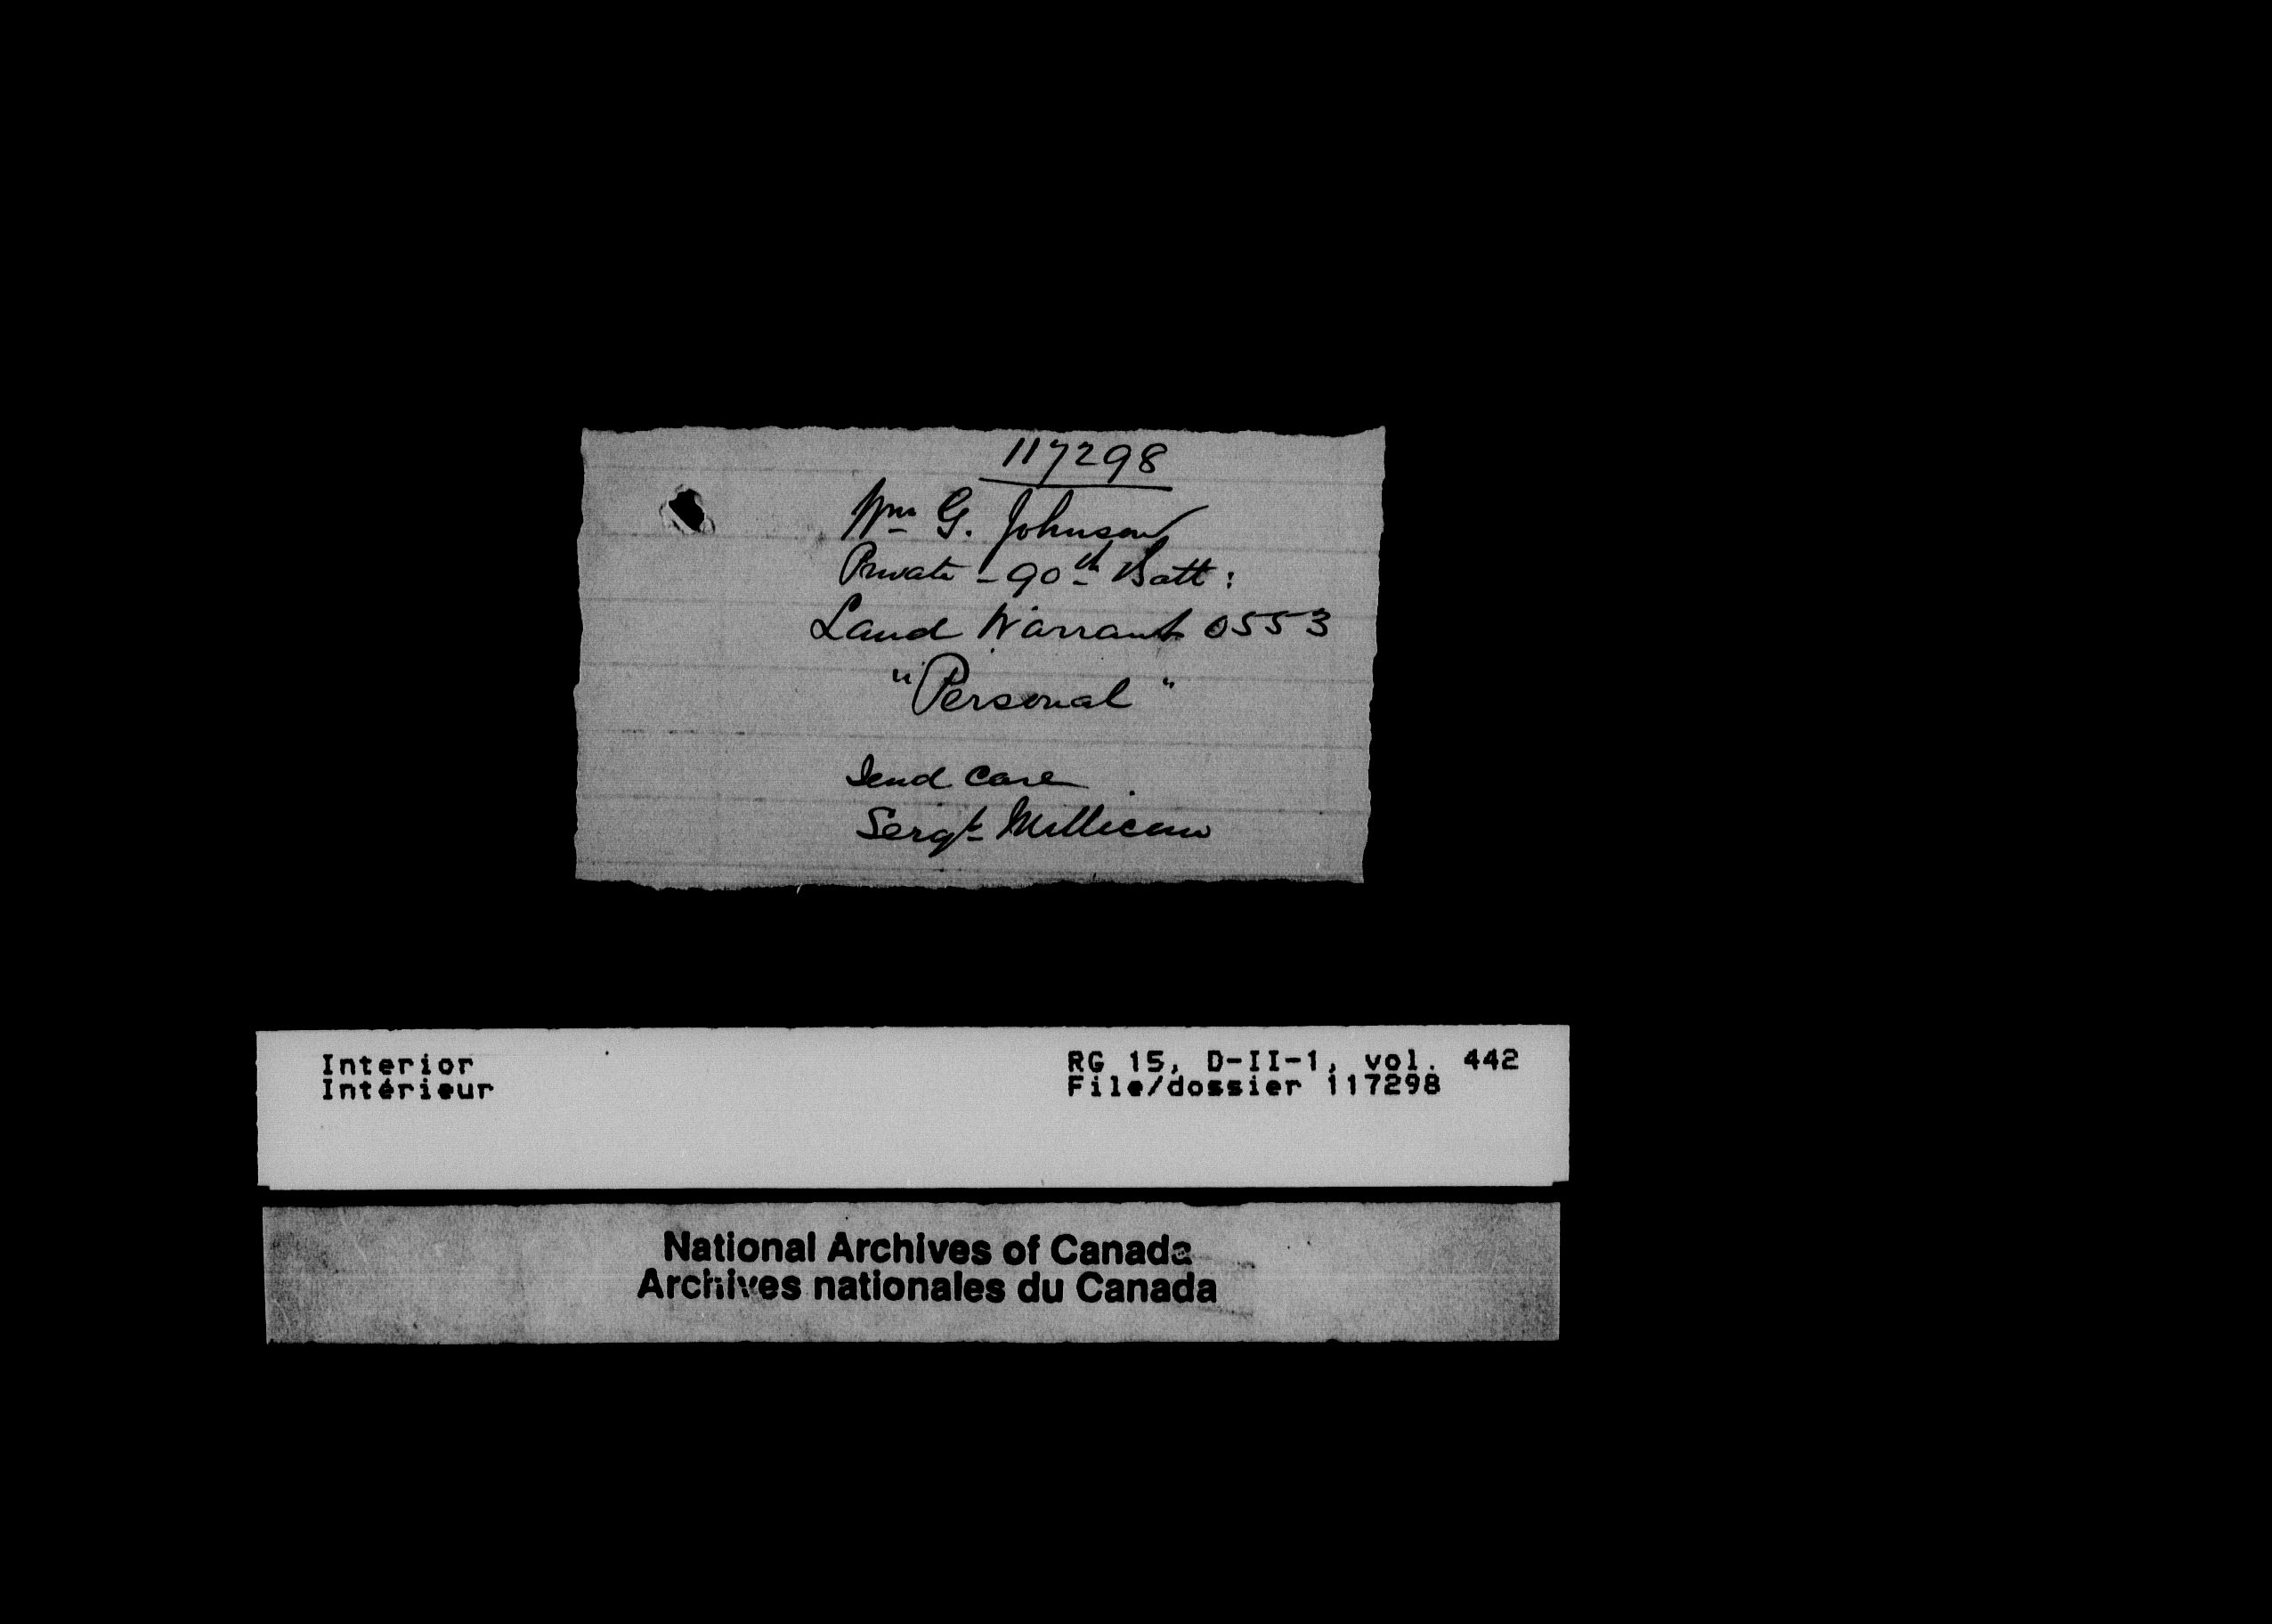 117298
Wm G. Johnson
Private - 90th Batt:
Land Warrant 0553
"Personal"
Send care
Sergt Millican
Interior
Intérieur
RG 15, D-II-1, vol. 442
File/dossier 117298
National Archives of Canada
Archives nationales du Canada